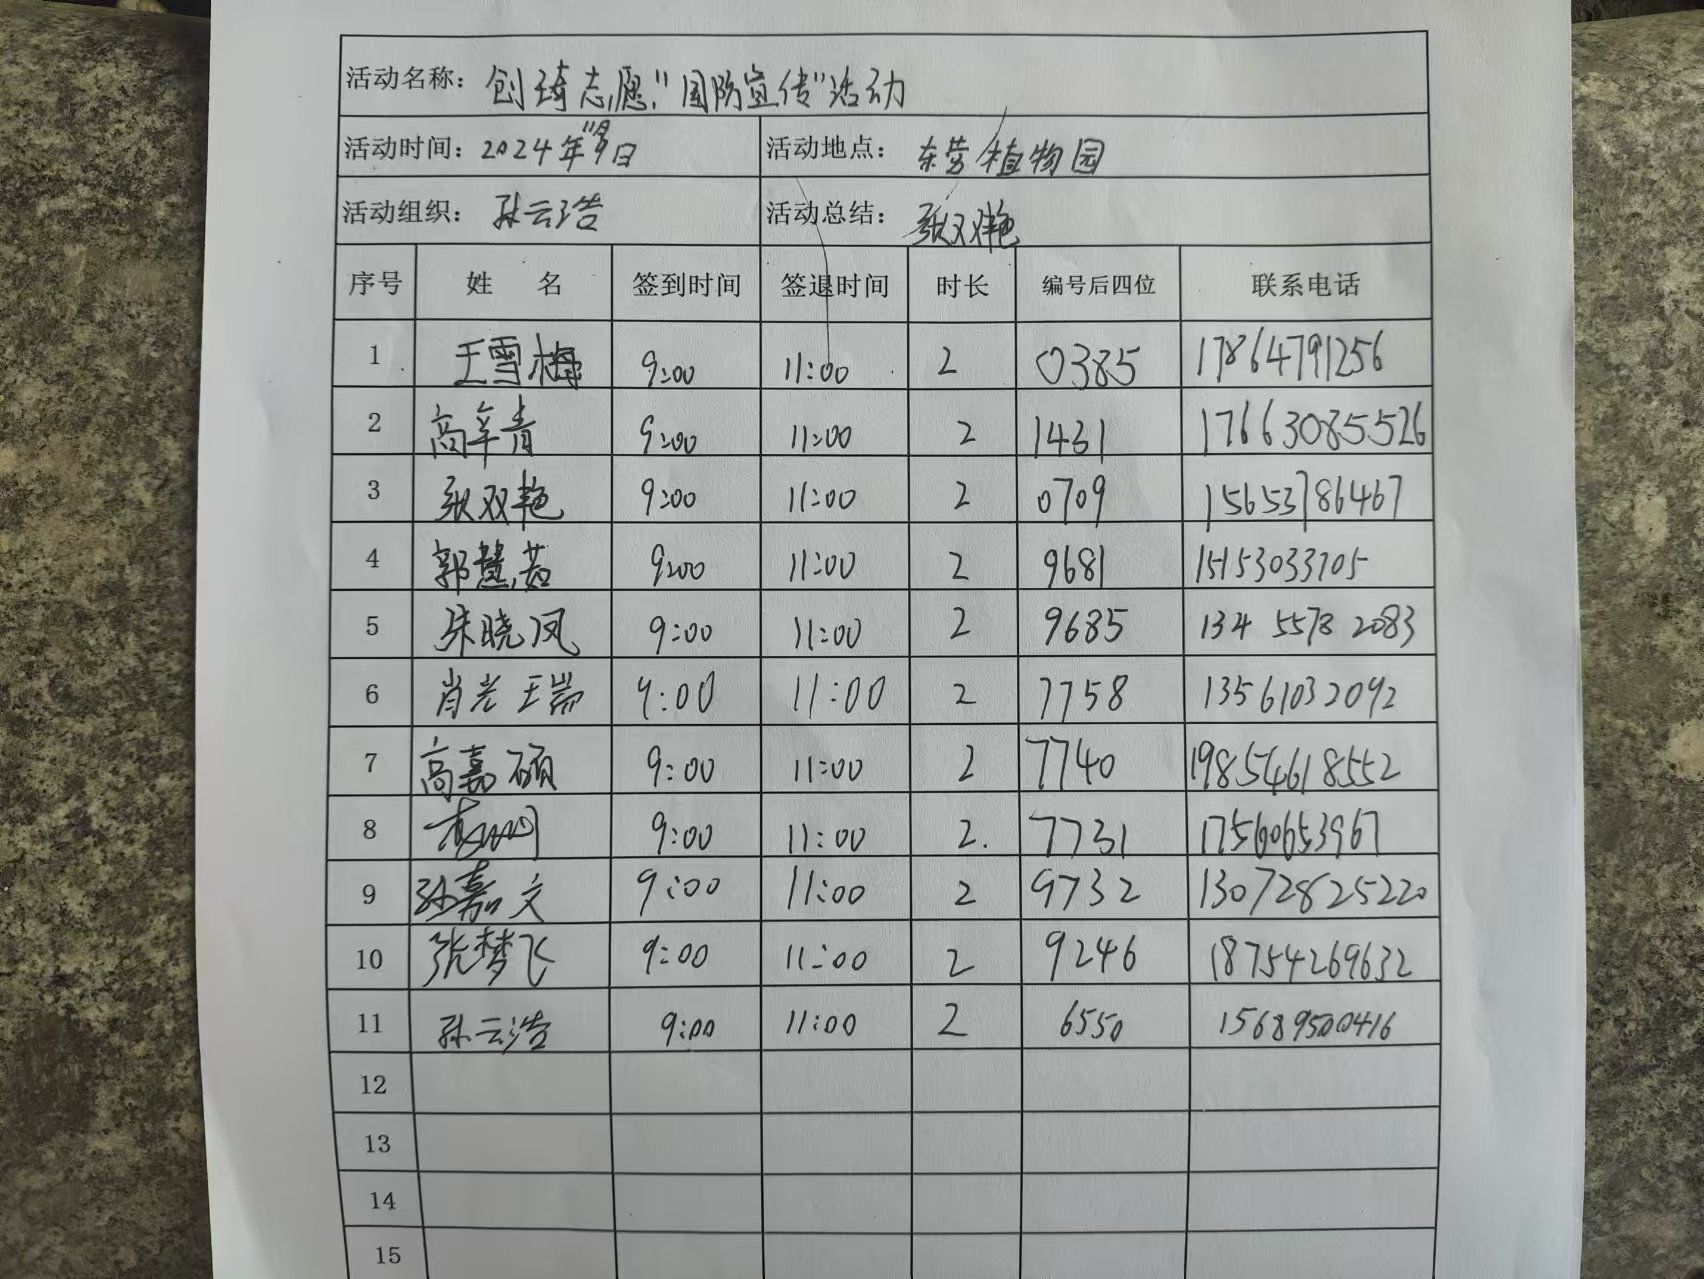 活动名称：创琦志愿“国防宣传”活动
活动时间：2024年11月9日 活动地点：东营植物园
活动组织：孙云浩 活动总结：张双艳
序号 姓 名 签到时间 签退时间 时长 编号后四位 联系电话
1 王雪梅 9:00 11:00 2 0385 17864791256
2 高辛青 9:00 11:00 2 1431 17663085526
3 张双艳 9:00 11:00 2 0709 15653786467
4 郭慧茹 9:00 11:00 2 9681 15153033705
5 朱晓凤 9:00 11:00 2 9685 134 5578 2083
6 肖岩王瑞 9:00 11:00 2 7758 13561032092
7 高嘉硕 9:00 11:00 2 7740 19854618552
8 9:00 11:00 2. 7731 17560653967
9 孙嘉文 9:00 11:00 2 9732 13072825220
10 张梦飞 9:00 11:00 2 9246 18754269632
11 孙云浩 9:00 11:00 2 6550 15689500416
12
13
14
15